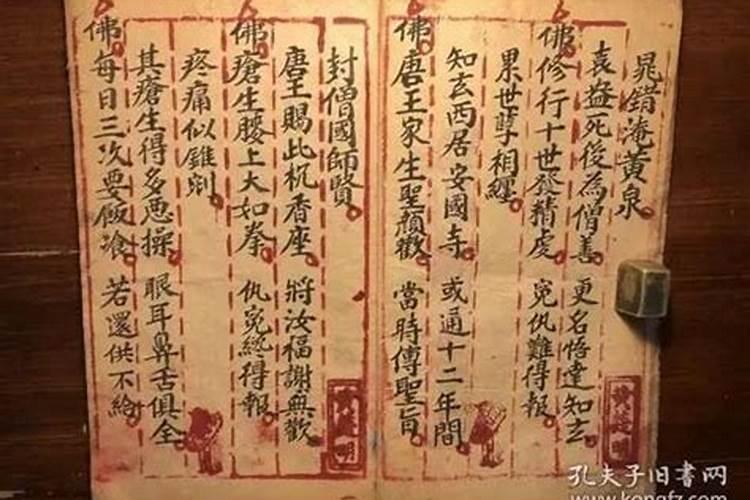 晁錯淹黃泉
袁益死後為僧善 更名悟達知玄
佛修行十世發精虔 冤仇難得報
累世孽相纏
知玄西居安國寺 或通十二年間
佛唐王家生聖顏歡 當時傳聖旨
封僧國師賢
唐王賜此杌香座 將汝福謝無歡
佛瘡生膝上大如拳 仇冤終得報
疼痛似錐剜
其瘡生得多恶操 眼耳鼻舌俱全
佛每日三次要飯飡 若還供不給
孔夫子旧書网